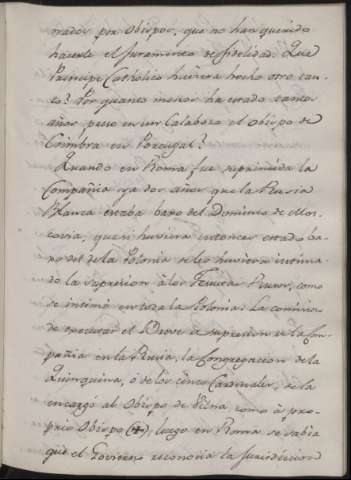 nados por Obispos, que no han querido
hacerle el juramento de fidelidad. Que
Principe Catholico huviera hecho otro tan-
to? Por quanto menos ha estado tantos
años preso en un Calabozo el Obispo de
Coimbra en Portugal?
Quando en Roma fue suprimida la
Compañia ya dos años que la Rusia
Blanca estaba baxo del Dominio de Mos-
covia, que si huviera entonces estado ba-
xo del de la Polonia se les huviera intima-
do la supresion à los Jesuitas Rusos, como
se intimò en toda la Polonia. La comision
de executar el Breve de supresion de la Com-
pañia en la Rusia, la Congregacion de la
Quinquina, ò de los cinco Cardenales, se la
encargó al Obispo de Vilna como à pro-
prio Obispo (+), luego en Roma se sabia
que el Govierno reconocia la Jurisdiccion